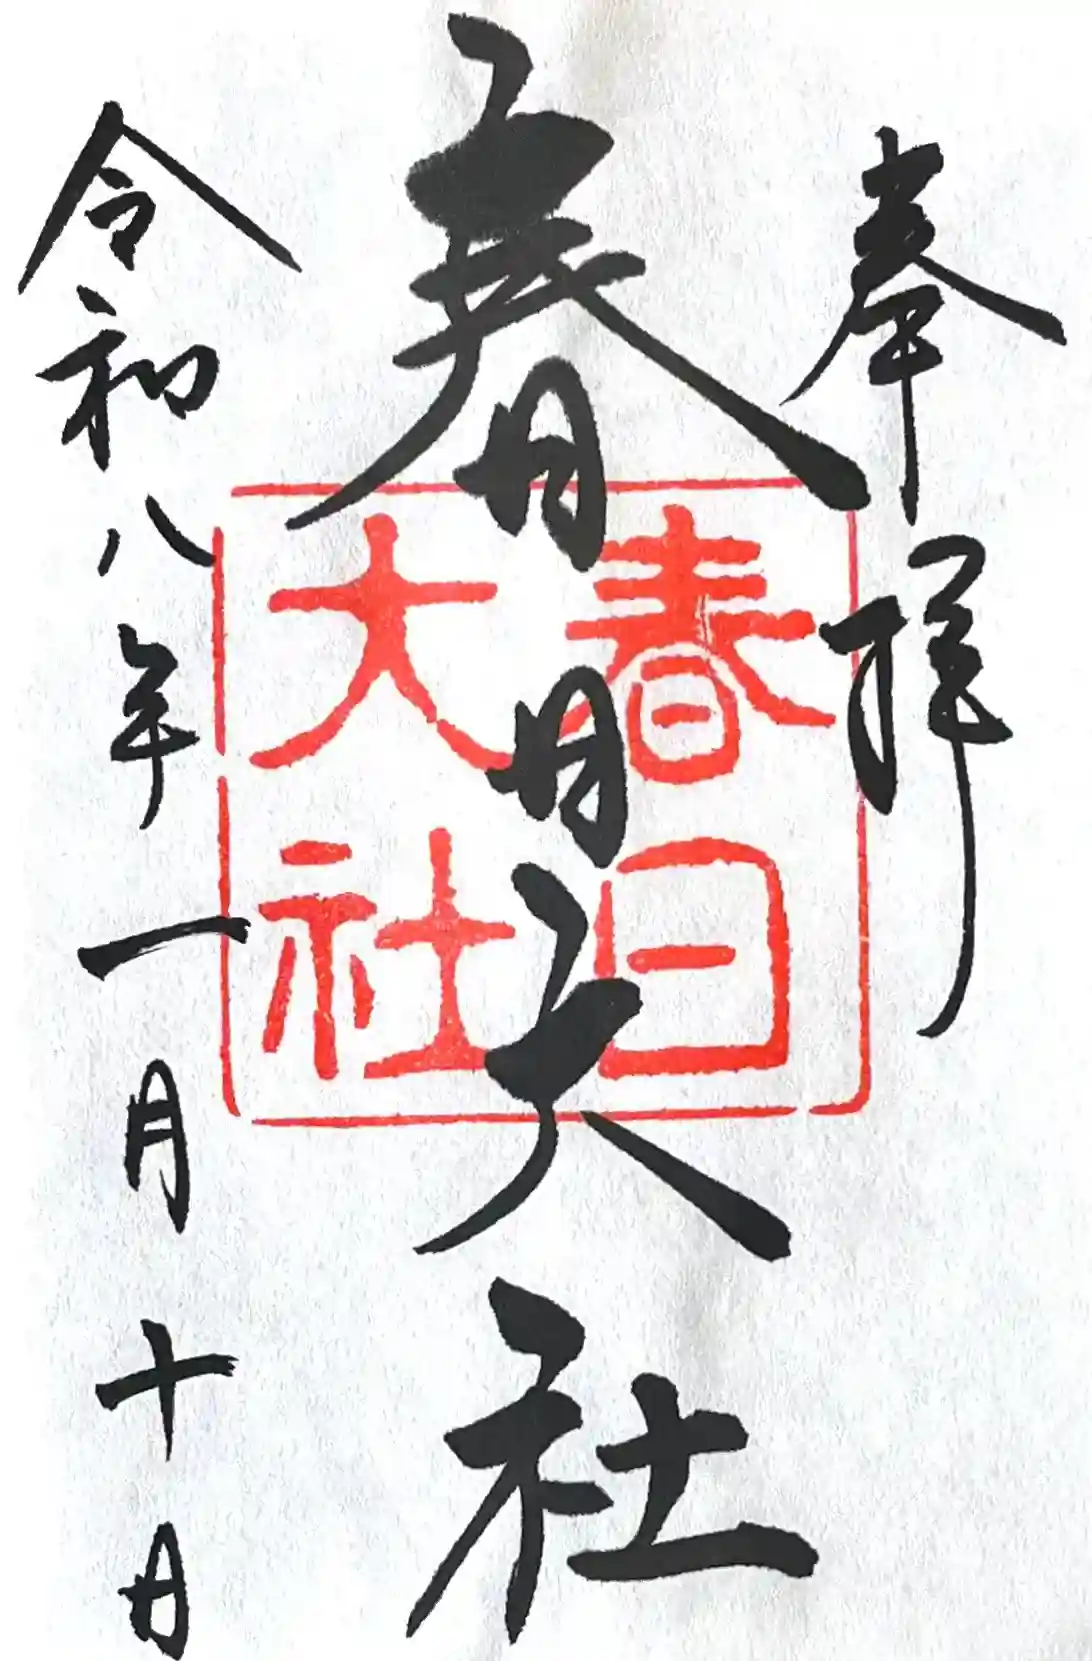 奉拝
春日大社
春日
大社
令和八年一月十日